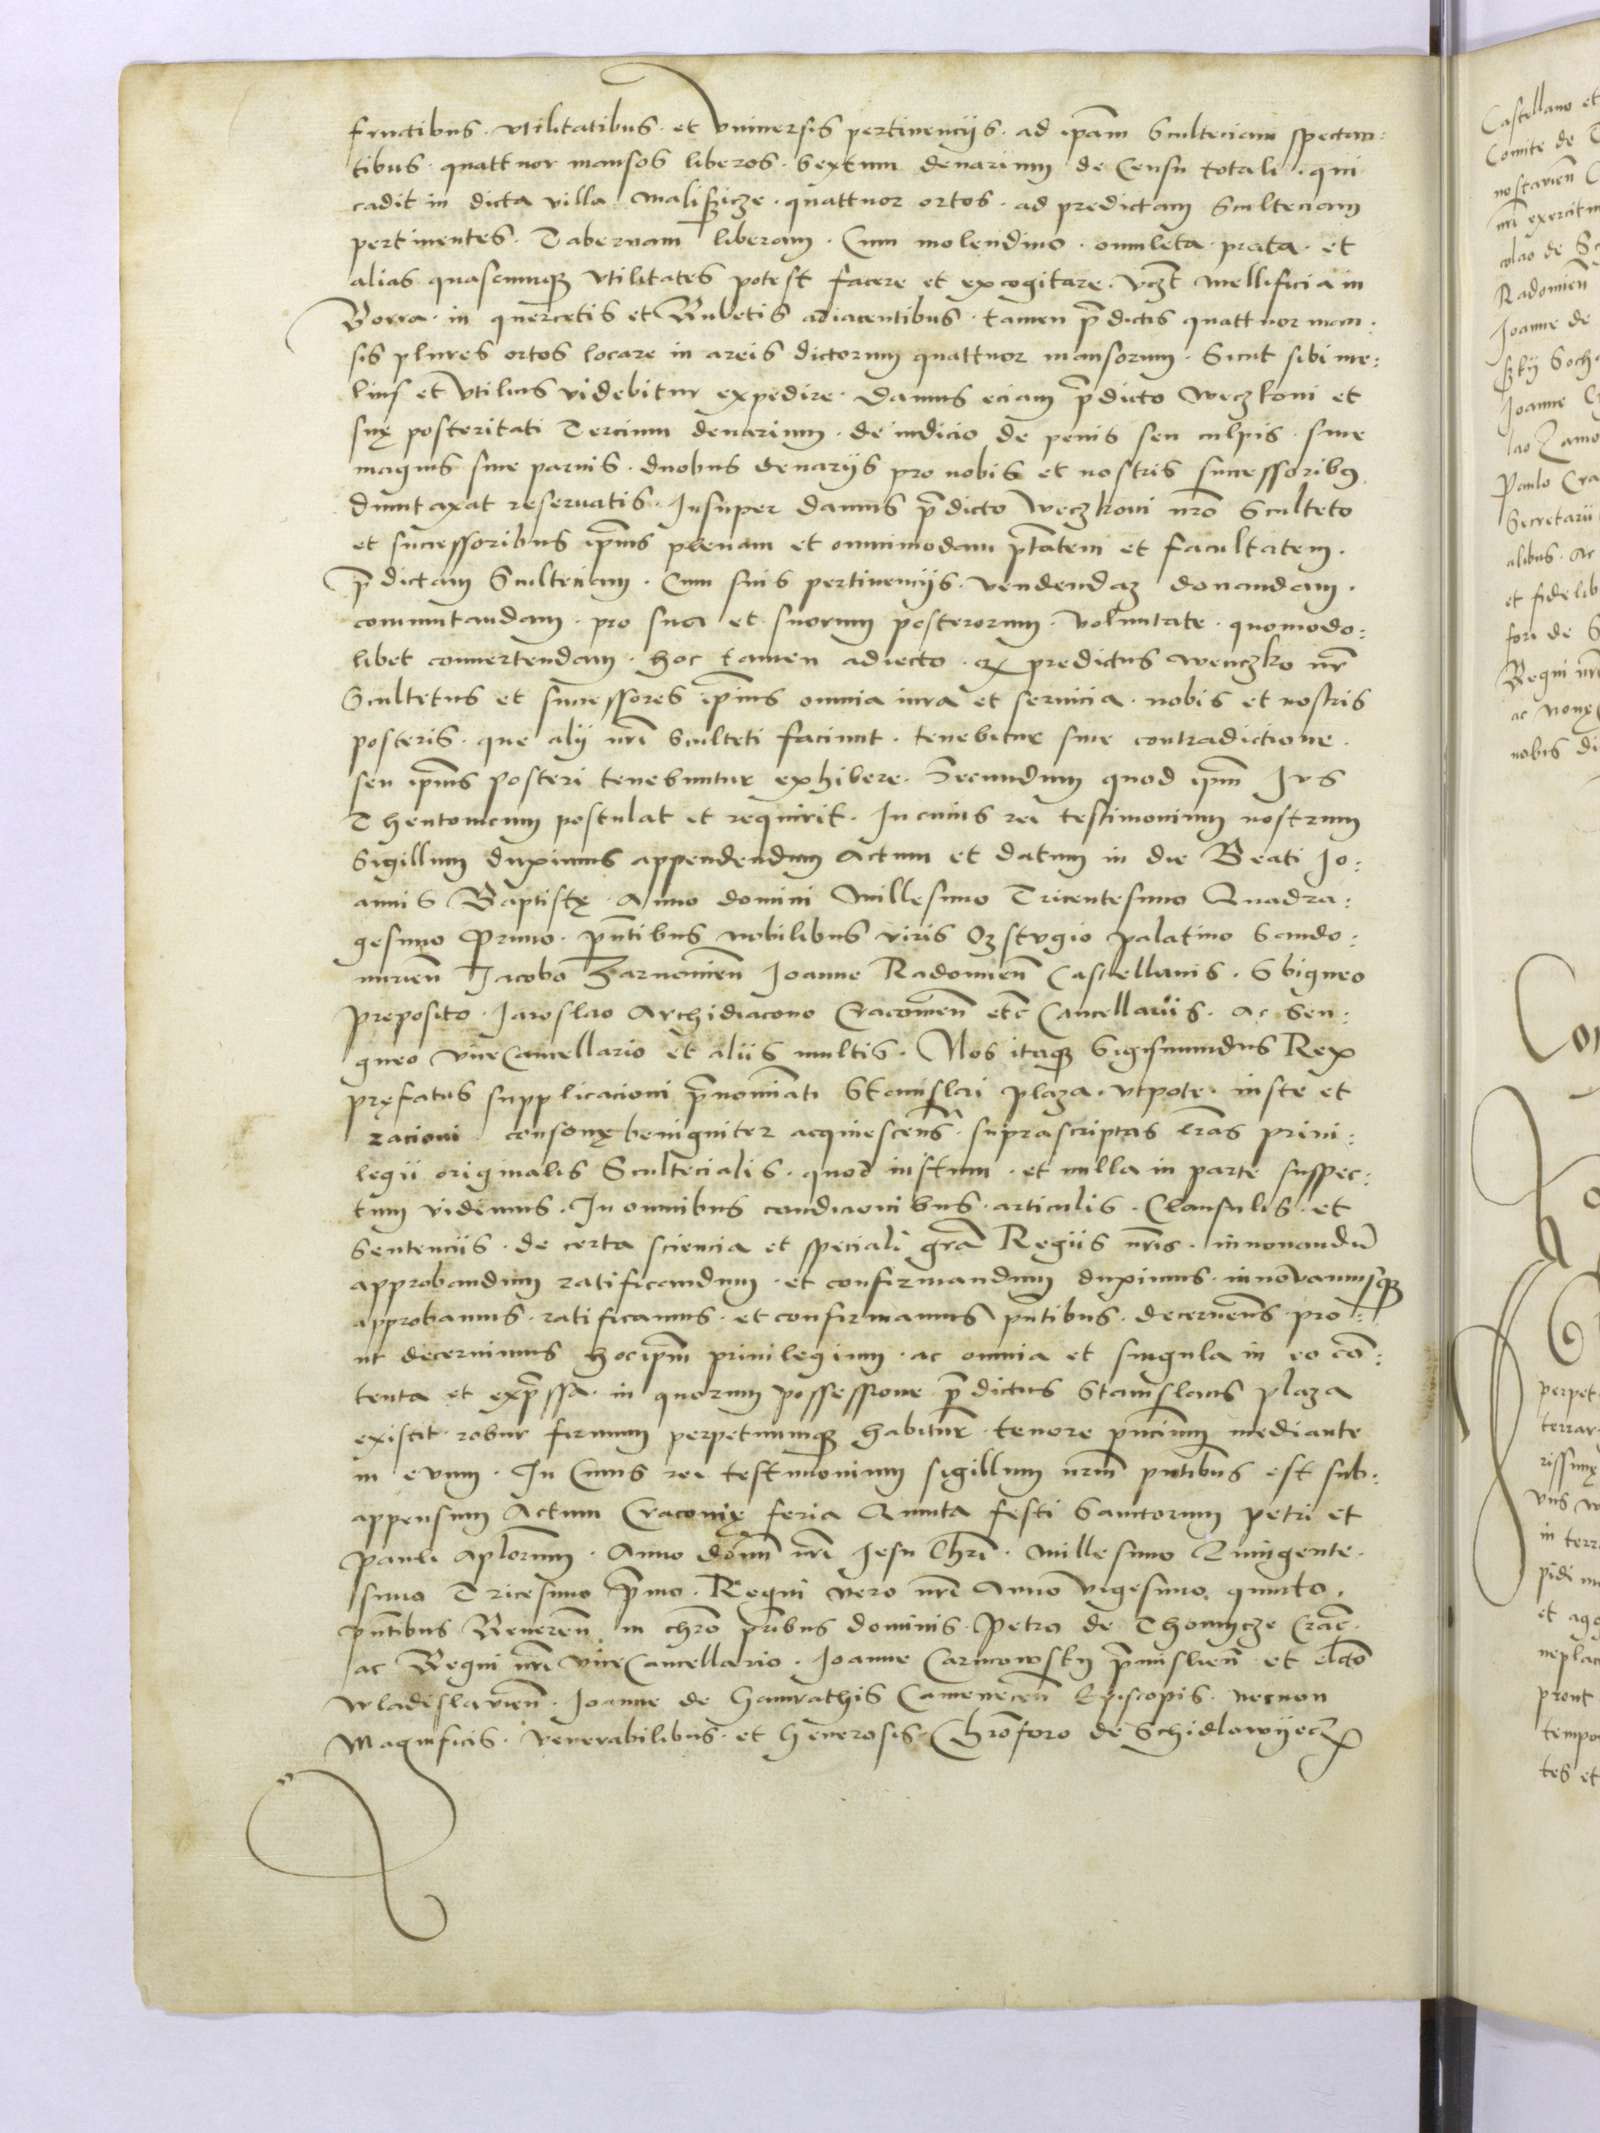 fructibus · vtilitatibus · et vniuersis pertinencijs · ad ipam̄ Sculteciam spectan:
tibus · quattuor mansos liberos · Sextum denarium de Censu totali · qui
cadit in dicta villa Maliszicze · quattuor ortos · ad predictam Sculteciam
pertinentes · Tabernam liberam · Cum molendino · omnleta · prata · et
alias quascumqꝫ vtilitates potest facere et excogitare · vczt mellificia in
Borra · in quercetis et Rubetis adiacentibus · tamen p̄dictis quattuor man:
sis plures ortos locare in areis dictorum quattuor mansorum · Sicut sibi me:
lius et vtilius videbitur expedire · Damus eciam p̄dicto Weczkoni et
suę posteritati Tercium denarium · de iudicio de penis seu culpis · siue
magnis siue paruis · duobus denarijs pro nobis et nostris successoribꝰ
duntaxat reseruatis · Insuper damus p̄dicto Weczkoni nrō Sculteto
et successoribus ip̄ius plenam et omnimodam p̄tatem et facultatem ·
p̄dictam Sculteciam · Cum suis pertinencijs · vendendaꝫ donandam ·
commutandam · pro sua et suorum posterorum · voluntate · quomodo:
libet conuertendam · hoc tamen adiecto · ꝙ predictus Wenczko nr̄
Scultetus et successores ip̄ius omnia iura et seruicia · nobis et nostris
posteris · que alij nrī Sculteti faciunt · tenebitur siue contradictione ·
seu ip̄ius posteri tenebuntur exhibere · Secundum quod ipm̄ Ius
Theutonicum postulat et requirit · In cuius rei testimonium nostrum
Sigillum duximus appendendum Actum et datum in die Beati Io:
annis Baptistę · Anno domini Millesimo Tricentesimo Quadra:
gesimo Primo · pn̄tibus nobilibus viris Ozstvgio palatino Sando:
mirien̄ Jacobo Zarnouien̄ Joanne Radomien̄ Castellanis · Sbigneo
Preposito · Jaroslao Archidiacono Cracouien̄ etc̄ Cancellarijs · Ac Sen:
gneo ViceCancellario et aliis multis · Nos itaqꝫ Sigismundus Rex
pręfatus supplicacioni p̄nominati Stanislai Plaza · vtpote · iuste et
racioni consonę benigniter acquiescens̄ · suprascriptas lr̄as priui:
legii originalis Scultecialis · quod iustum · et nulla in parte suspec:
tum vidimus · In omnibus condicionibus · articulis · Clausulis · et
Sentencijs · de certa sciencia et speciali grā Regiis nrīs · innouandū
approbandum ratificandum · et confirmandum duximus · innouamusqꝫ
approbamus · ratificamus · et confirmamus pn̄tibus · decernens̄ · pro:
ut decernimus hoc ipm̄ priuilegium · ac omnia et singula in eo con̄:
tenta et exp̄ssa · in quorum possessione p̄dictus Stanislaus Plaza
existit · robur firmum perpetuumqꝫ habitur̄ · tenore pn̄cium mediante
in euum · In Cuius rei testimonium sigillum nrm̄ pn̄tibus est sub:
appensum Actum Cracouię feria Quinta festi Sanctorum Petri et
Pauli Aplōrum · Anno domī nrī Jesu Chrī · Millesimo Quingente:
simo Tricesimo p̄mo · Regni vero nrī Anno vigesimo quinto ·
pn̄tibus Reueren̄ in chrō prībus dominis Petro de Thomycze Crac̄ ·
ac Regni nrī ViceCancellario · Joanne Carnkowsky p̄mislien̄ · et elcto
Wladislauien̄ · Joanne de Hamrathis Camenecen̄ Episcopis · necnon
Magnificis · Venerabilibus · et Generosis · Chrōforo de Schidlowyecz